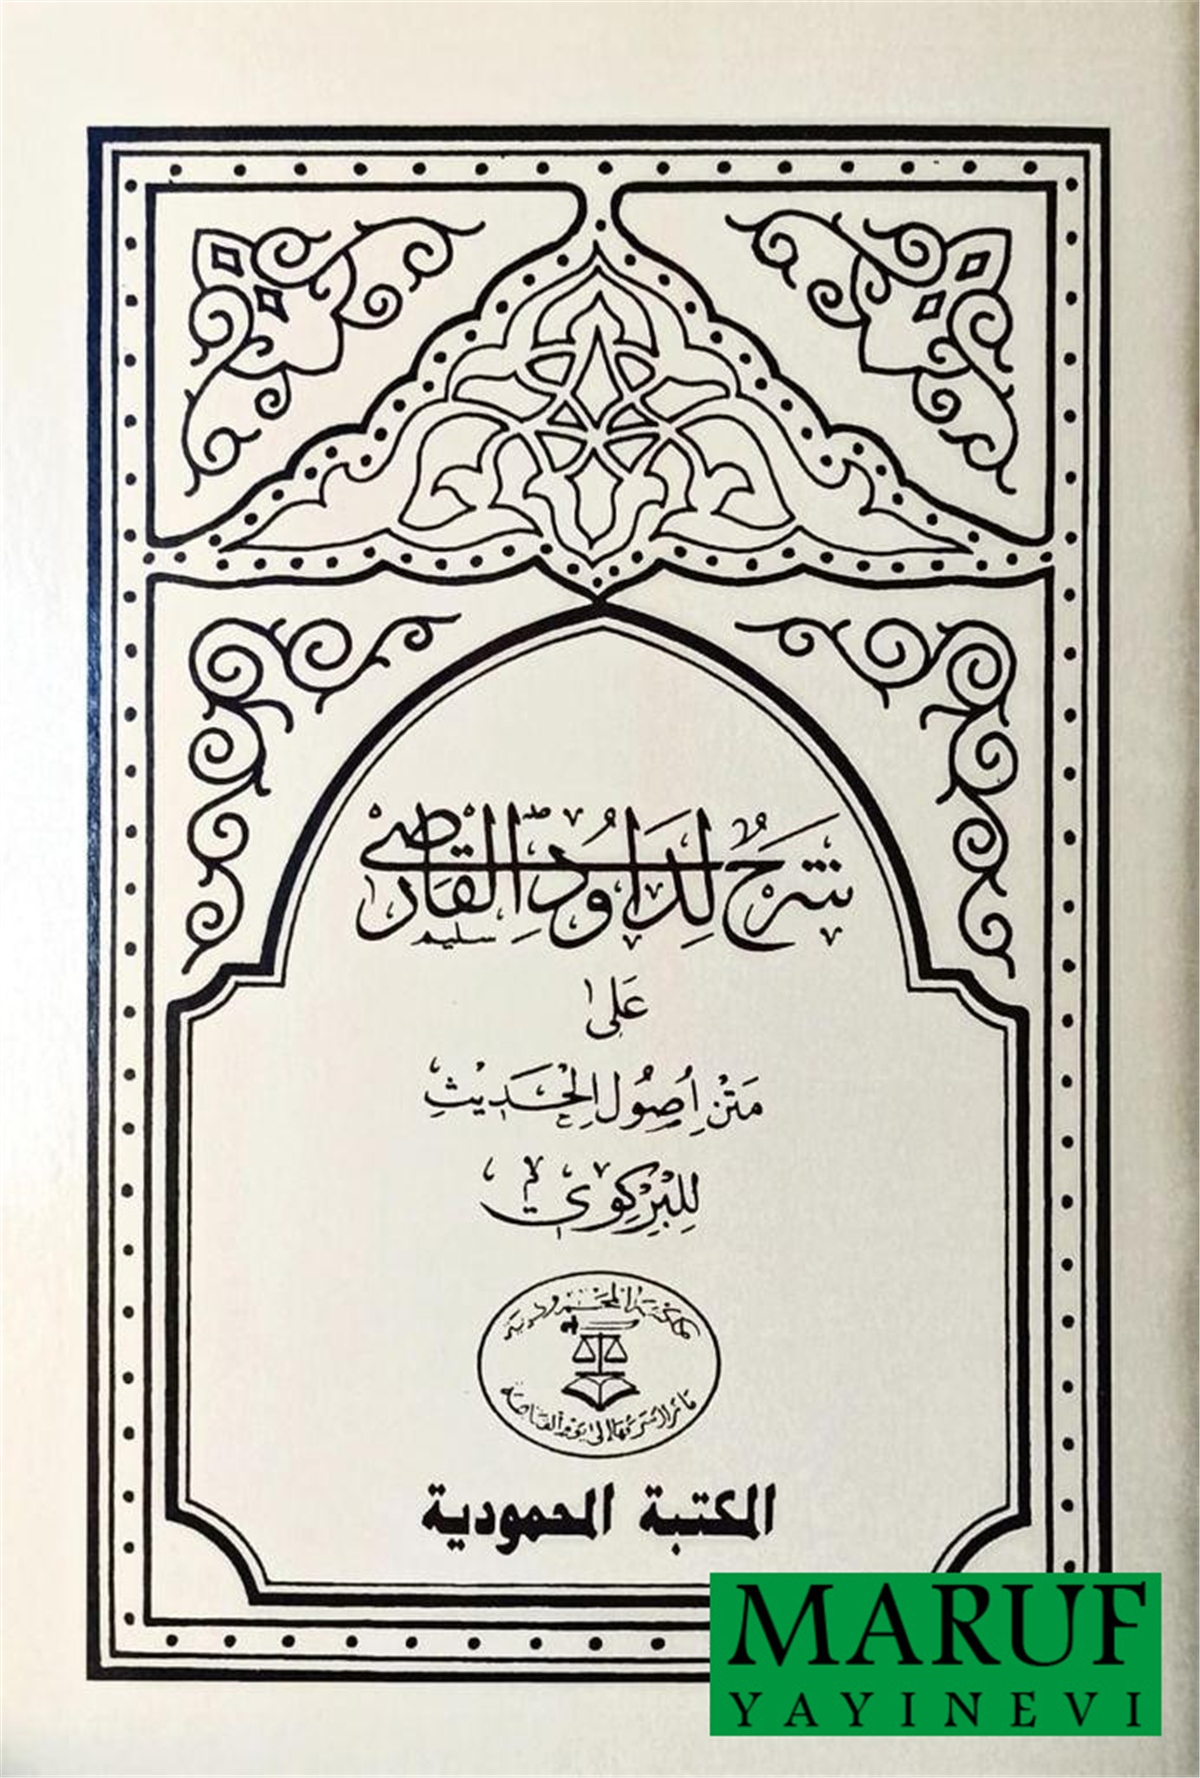 شَرْحُ لِدَاوُدَ القَارْصِيّ
سليم
عَلَى
مَتْنِ اُصُولِ الْحَدِيثِ
لِلْبِرْكِوِي
مكتبة المحمودية
المكتبة المحمودية
MARUF
YAYINEVI